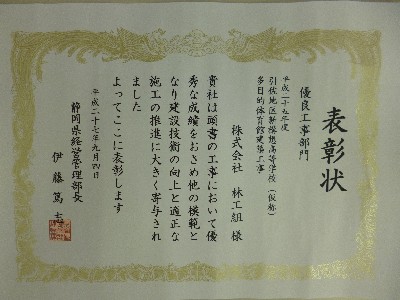 表彰状
優良工事部門
平成二十五年度
引佐地区新構想高等学校（仮称）
多目的体育館建築工事
株式会社 林工組 様
貴社は頭書の工事において優
秀な成績をおさめ他の模範と
なり建設技術の向上と適正な
施工の推進に大きく寄与され
ました
よってここに表彰します
平成二十七年九月四日
静岡県経営管理部長
伊藤篤志